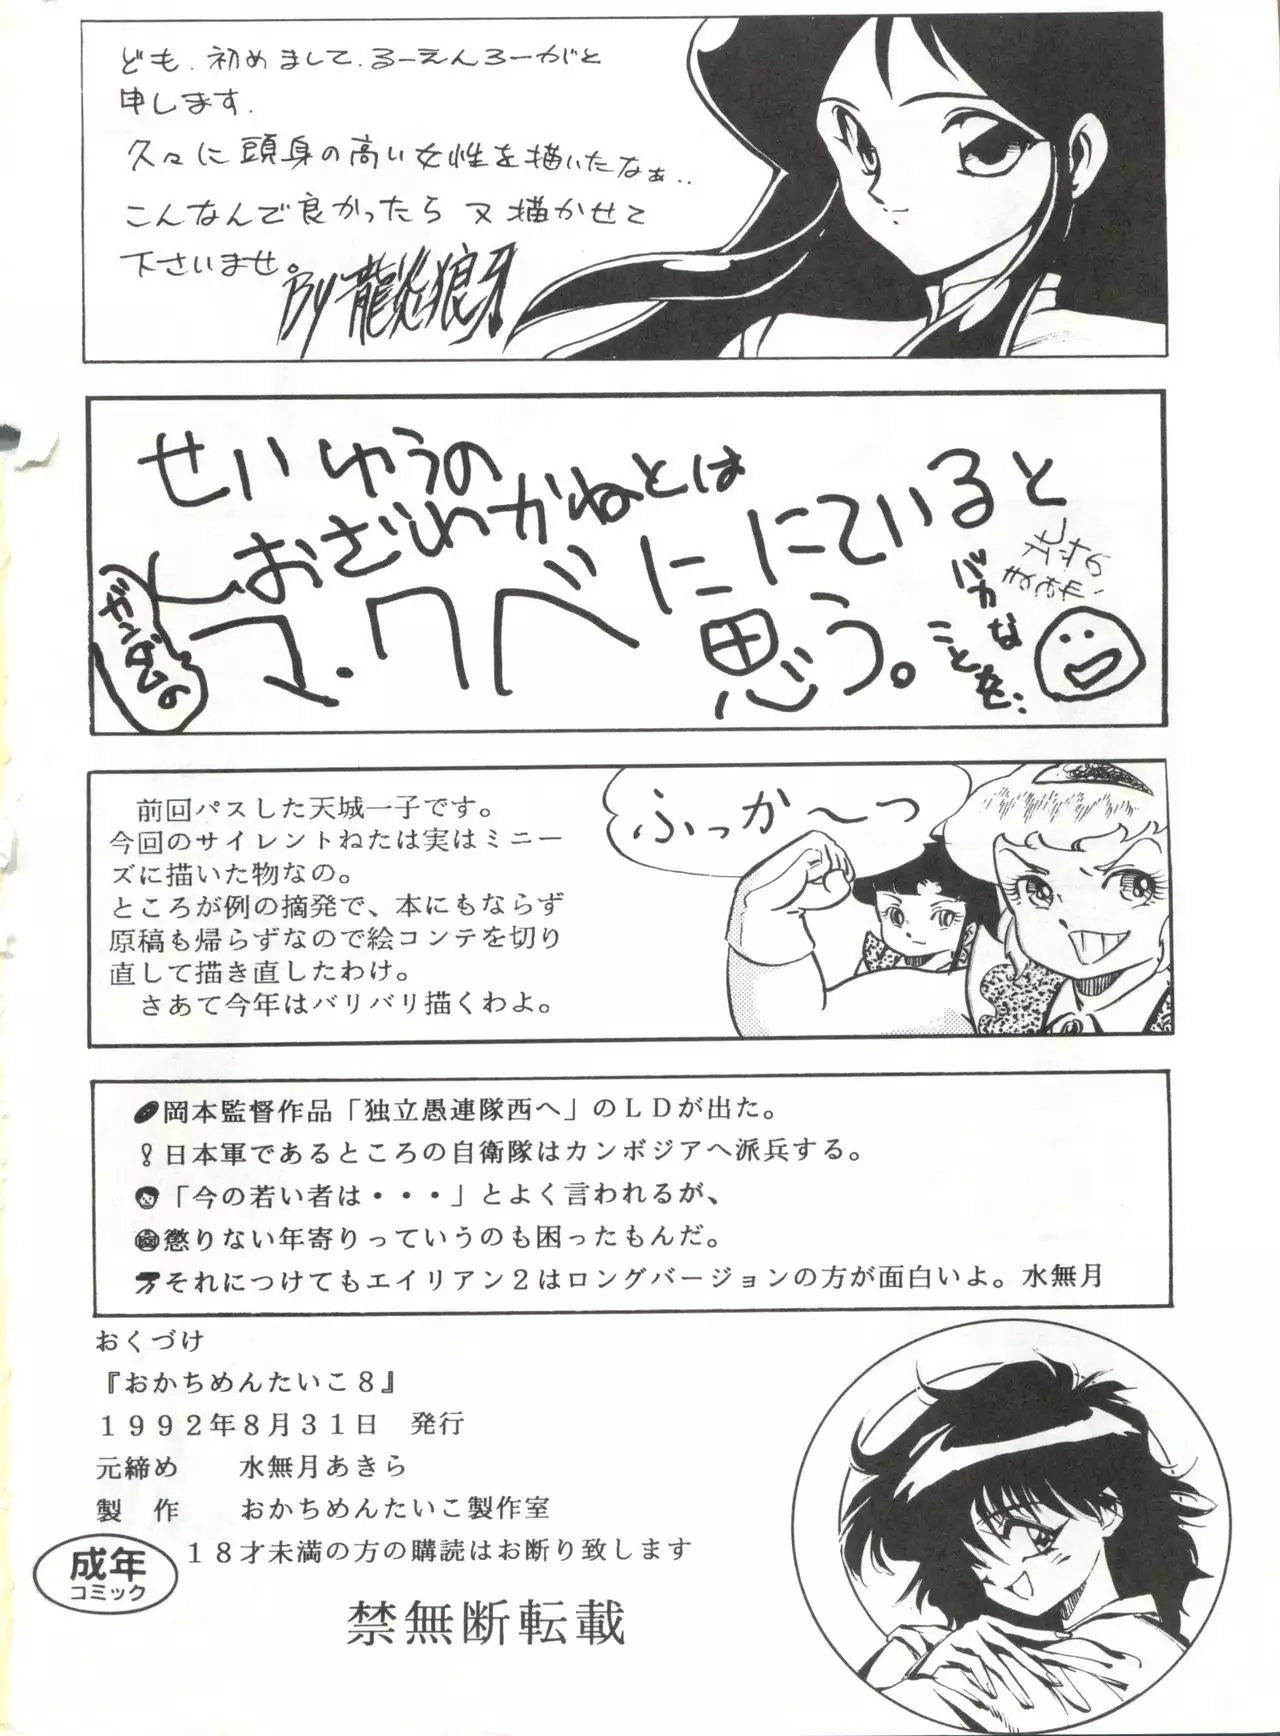 ども、初めまして、るーえんろーがと
申します.
久々に頭身の高い女性を描いたなぁ..
こんなんで良かったら 又描かせて
下さいませ。
By 龍炎狼牙
せいゆうの
おざわかねとは
ガンダムの
マ・クベににていると
思う。
バカな
ことを..
前回パスした天城一子です。
今回のサイレントねたは実はミニー
ズに描いた物なの。
ところが例の摘発で、本にもならず
原稿も帰らずなので絵コンテを切り
直して描き直したわけ。
さあて今年はバリバリ描くわよ。
ふっか〜つ
岡本監督作品「独立愚連隊西へ」のＬＤが出た。
日本軍であるところの自衛隊はカンボジアへ派兵する。
「今の若い者は・・・」とよく言われるが、
懲りない年寄りっていうのも困ったもんだ。
それにつけてもエイリアン２はロングバージョンの方が面白いよ。水無月
おくづけ
『おかちめんたいこ８』
１９９２年８月３１日　発行
元締め　　水無月あきら
製　作　　おかちめんたいこ製作室
成年
コミック
１８才未満の方の購読はお断り致します
禁無断転載